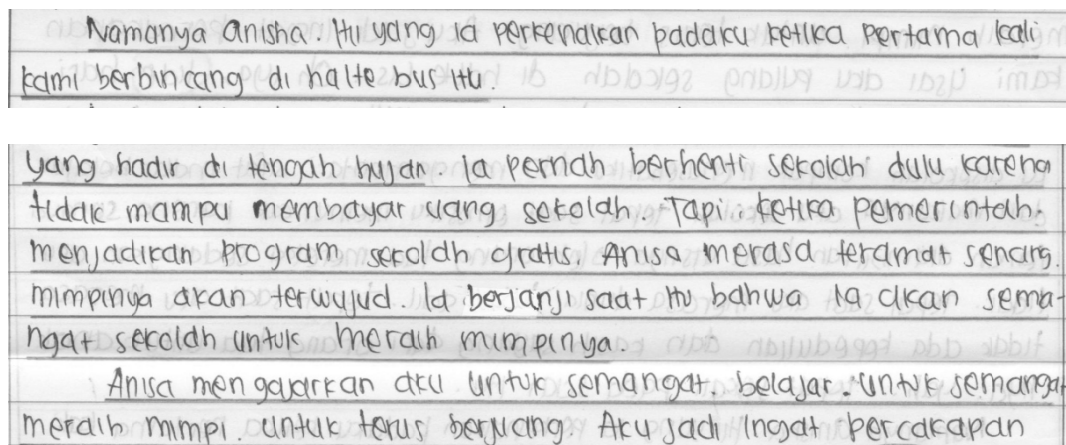 Namanya Anisha. Itu yang ia perkenalkan padaku ketika pertama kali
kami berbincang di halte bus itu.
yang hadir di tengah hujan. ia pernah berhenti sekolah dulu karena
tidak mampu membayar uang sekolah. Tapi ketika pemerintah
menjadikan program sekolah gratis. Anisa merasa teramat senang.
mimpinya akan terwujud. Ia berjanji saat itu bahwa ia akan sema-
ngat sekolah untuk meraih mimpinya.
Anisa mengajarkan aku untuk semangat belajar. untuk semangat
meraih mimpi. untuk terus berjuang. Aku jadi ingat percakapan